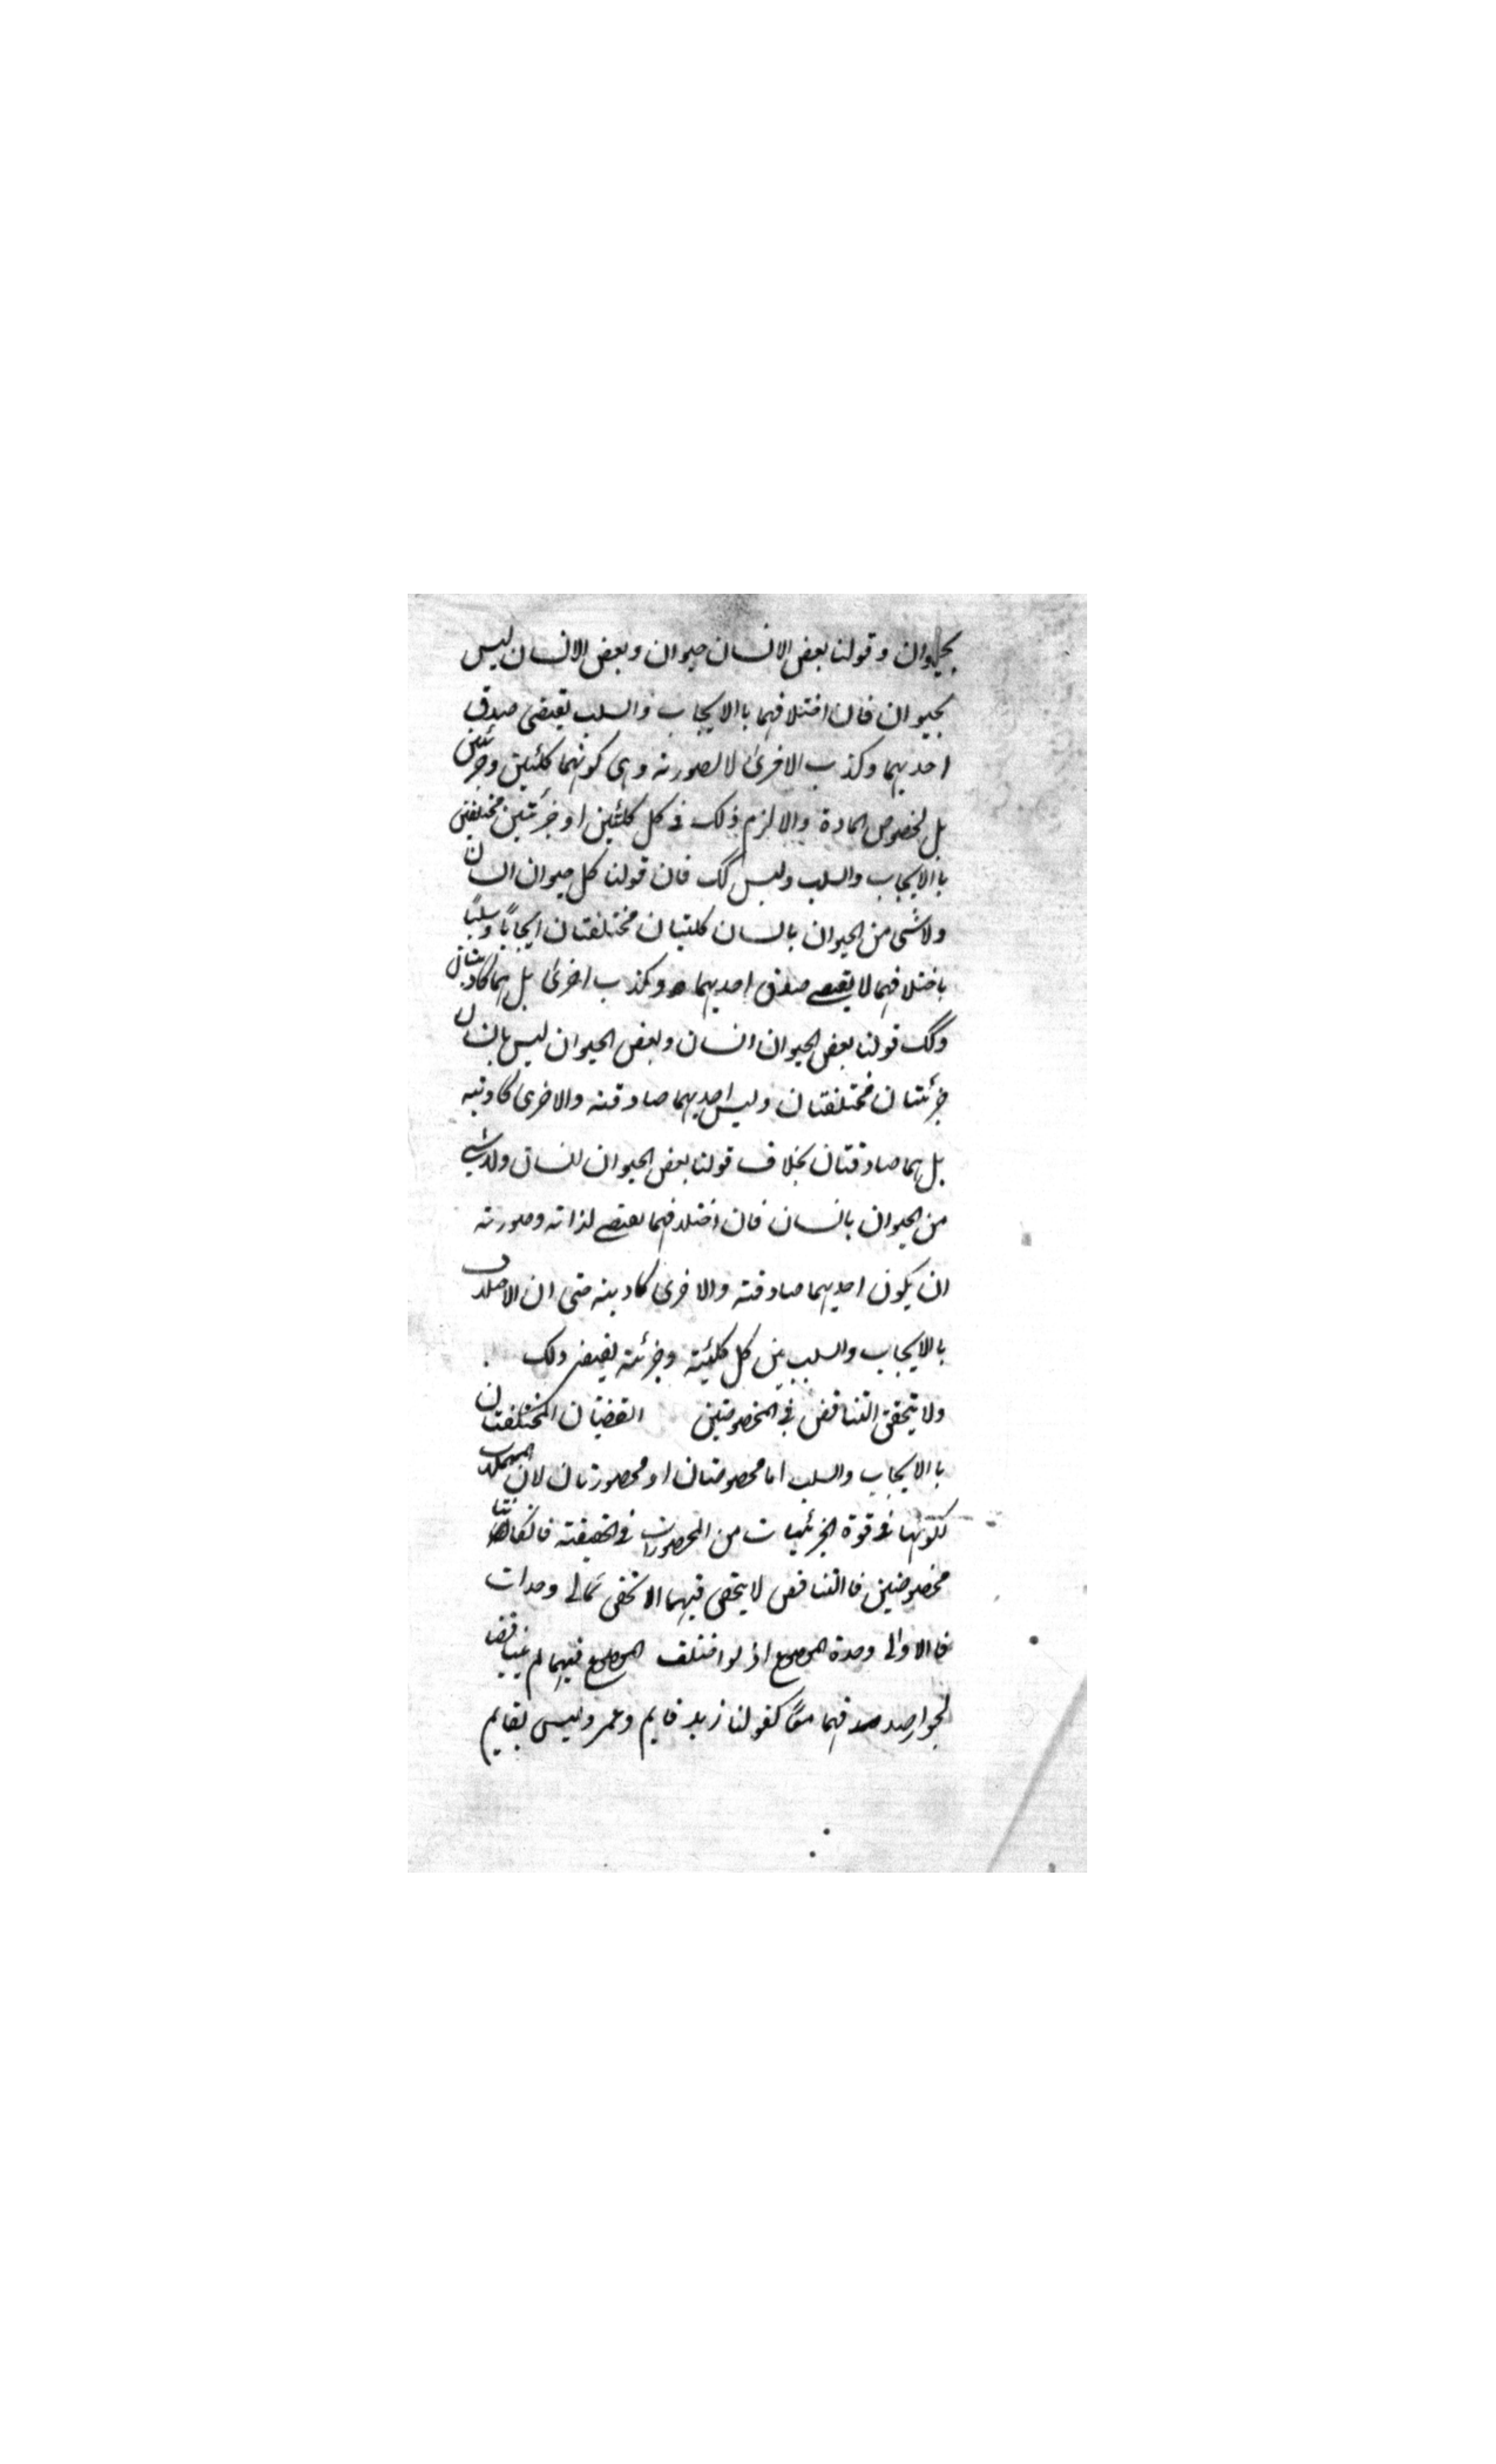 بحيوان وقولنا بعض الانسان حيوان وبعض الانسان ليس
بحيوان فان اختلافهما باالايجاب والسلب يقتضى صدق
احديهما وكذب الاخرى لا لصورته وهى كونهما كلئيتين وجزئتين
بل لخصوص المادة والا لزم ذلك فى كل كلئتين او جزئتين مختلفتين
باالايجاب والسلب وليس كك فان قولنا كل حيوان انسان
ولا شى من الحيوان بانسان كليتان مختلفتان ايجابًا وسلبًا
باختلافهما لا يقتضى صدق احديهما وكذب اخرى بل هما كاذبتان
وكك قولنا بعض الحيوان انسان وبعض الحيوان ليس بانسان
جزئتان مختلفتان وليس احديهما صادقته والاخرى كاذبته
بل هما صادقتان بخلاف قولنا بعض الحيوان انسان ولا شى
من الحيوان بانسان فان اختلافهما يقتضى لذاته وصورته
ان يكون احديهما صادقته والاخرى كاذبته حتى ان الاختلاف
بالايجاب والسلب بين كل كلئيته وجزئته يقتضى ذلك
ولا يتحقق التناقض فى المخصوصتين القضيتان المختلفتان
باالايجاب والسلب اما مخصوصتان او محصورتان لان المهملات
لكونها فى قوة الجزئيات من المحصورات فى الحقيقته فان كانتا
مخصوصتين فاالتناقض لا يتحقق فيهما الا تحقق ثمالى وحدات
فاالاولى وحدة الموضوع اذ لو اختلف الموضوع فيهما لم يتناقضا
لجواز صدقهما معًا كقولنا زيد قايم وعمر وليس بقايم